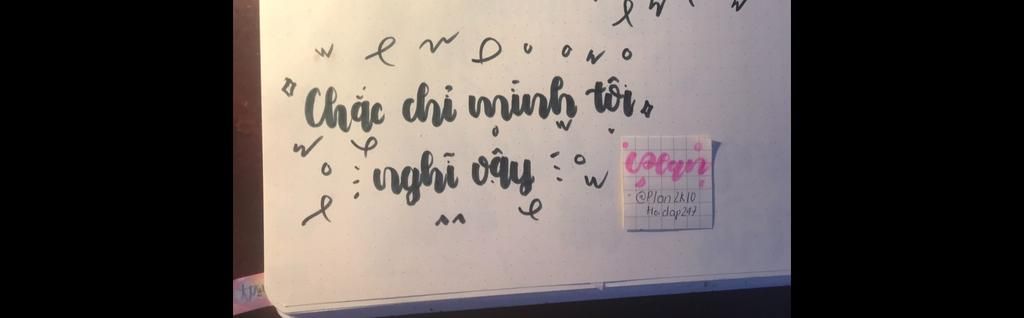 Chắc chỉ mình tôi
nghĩ vậy
@Plan2k10
Hoidap247